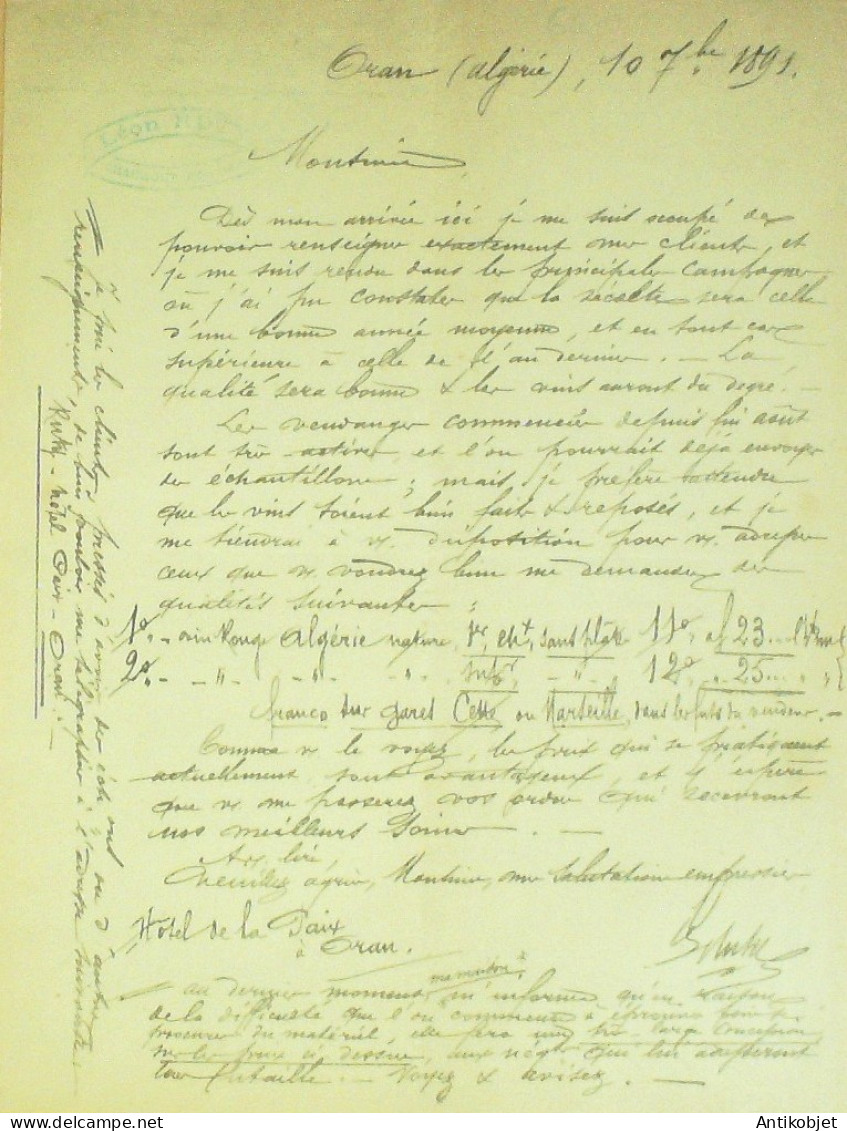 Oran (algérie), 10 7bre 1891.
Léon
Monsieur,
Dès mon arrivée ici je me suis occupé de
pouvoir renseigner exactement mes clients, et
je me suis rendu dans les principales Campagnes
où j'ai pu constater que la récolte sera celle
d'une bonne année moyenne, et en tout cas
supérieure à celle de l'an dernier. — La
qualité sera bonne & les vins auront du degré. —
Les vendanges commencées depuis fin août
sont très actives et l'on pourrait déjà envoyer
des échantillons ; mais je préfère attendre
que les vins soient bien faits & reposés, et je
me tiendrai à vs. disposition pour vs. adresser
ceux que vs. voudrez bien me demander des
qualités suivantes :
1o. - vin Rouge Algérie nature, 1er cht, sans plâtre 11o, à f 23...
2o. - -"- -"- -"- supr, -"- 12o, " 25...
franco sur gares Cette ou Marseille, dans les fûts du vendeur. —
Comme vs le voyez, les prix qui se pratiquent
actuellement sont avantageux, et j'espère
que vs me passerez vos ordres qui recevront
nos meilleurs soins. —
A vs. lire,
Veuillez agréer, Monsieur, mes salutations empressées
Hôtel de la Paix
à Oran.
au dernier moment ma maison m'informe qu'en raison
de la difficulté que l'on commence à éprouver pour se
procurer du matériel, elle fera une très large concession
sur les prix ci dessus, aux négts qui lui adresseront
leur futaille. — Voyez & avisez. —
Prière à les clients pressés d'avoir des échons ou d'autres
renseignements, de bien vouloir me télégraphier à l'adresse suivante :
hôtel Paix - Oran. -
Antikobjet